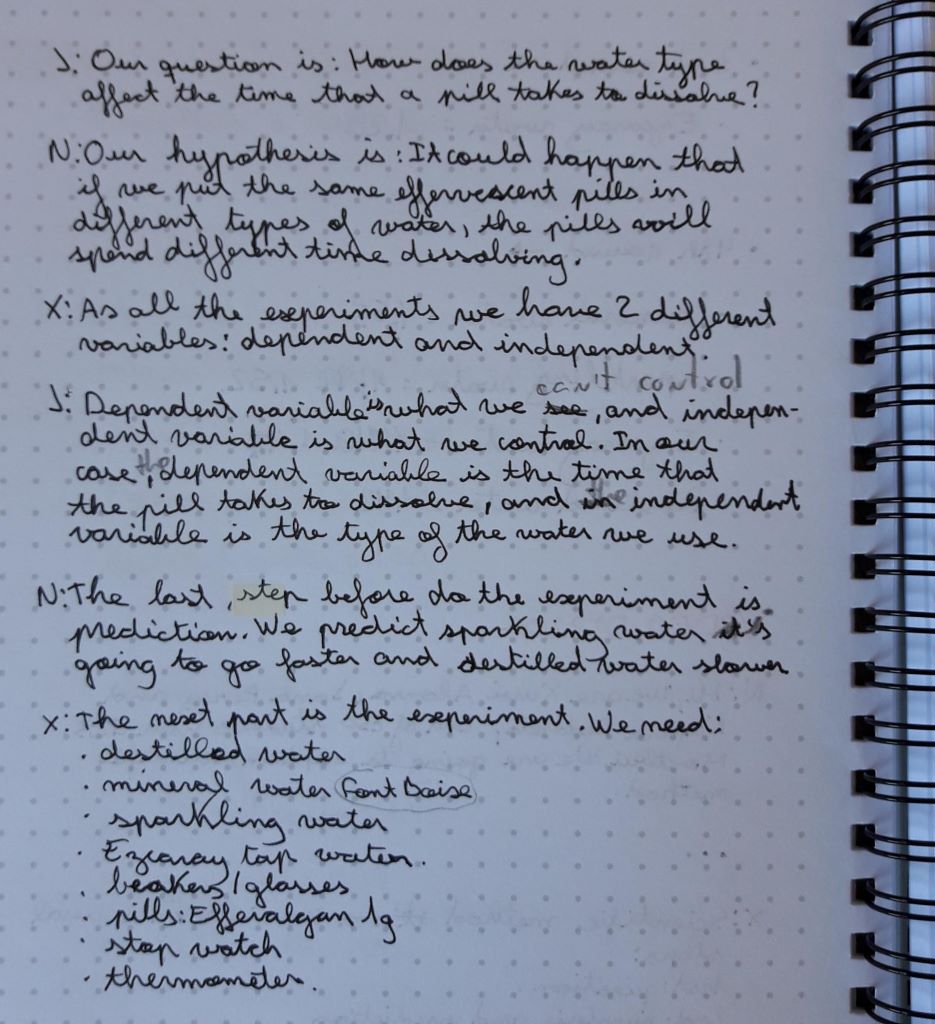 J: Our question is: How does the water type
affect the time that a pill takes to dissolve?
N: Our hypothesis is: It could happen that
if we put the same effervescent pills in
different types of water, the pills will
spend different time dissolving.
X: As all the experiments we have 2 different
variables: dependent and independent.
can't control
J: Dependent variable is what we see, and indepen-
dent variable is what we control. In our
case, the dependent variable is the time that
the pill takes to dissolve, and in the independent
variable is the type of the water we use.
N: The last step before do the experiment is
prediction. We predict sparkling water it's
going to go faster and destilled water slower
X: The next part is the experiment. We need:
· destilled water
· mineral water Font Baise
· sparkling water
· Ezcaray tap water.
· beakers/glasses
· pills: Efferalgan 1g
· stop watch
· thermometer.